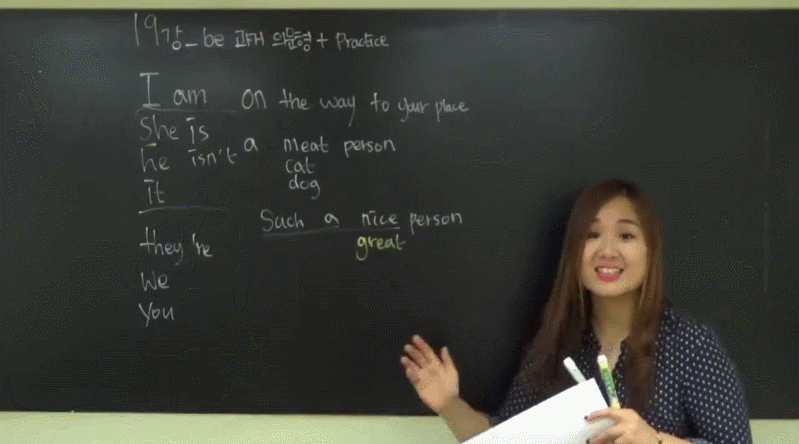 19강_be 과거 의문형 + Practice
I am on the way to your place
She is
he isn't a meat person
cat
it
dog
Such a nice person
great
they're
We
You